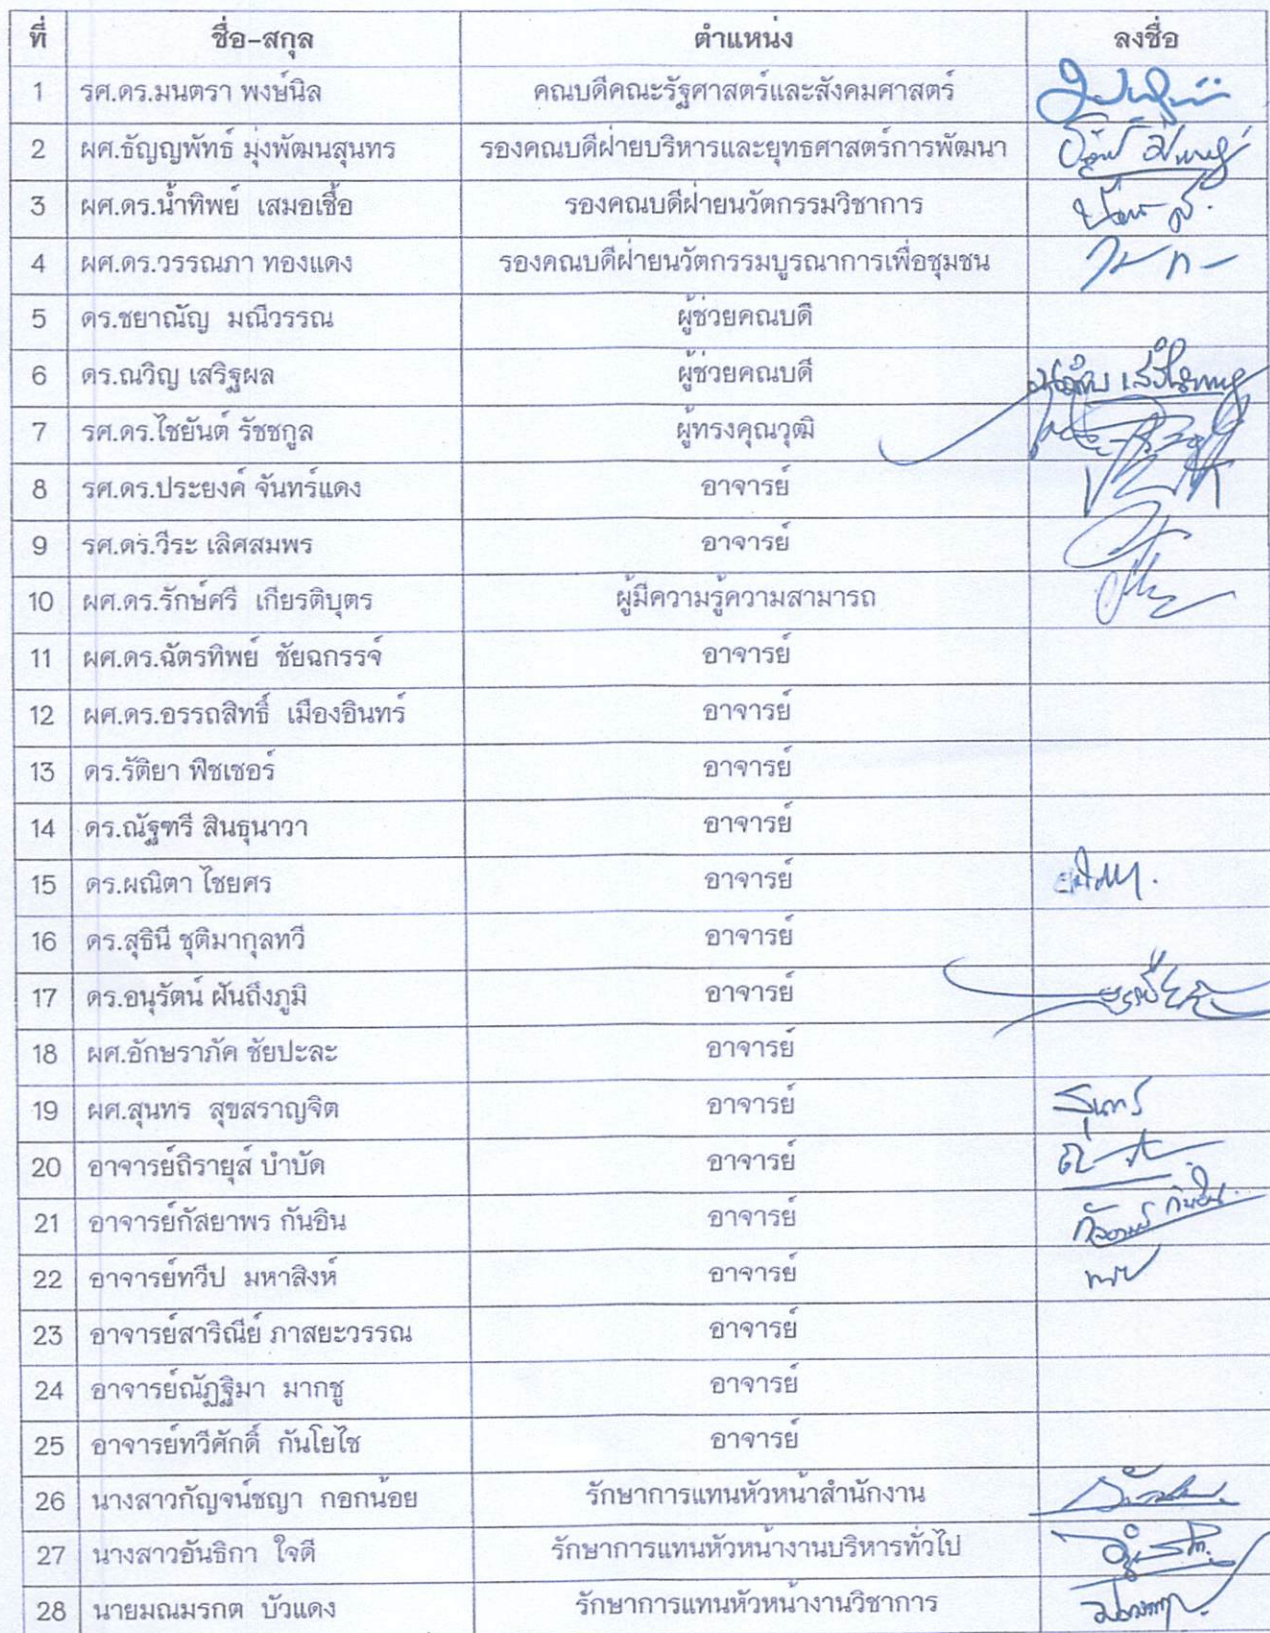 ที่ ชื่อ-สกุล ตำแหน่ง ลงชื่อ
1 รศ.ดร.มนตรา พงษ์นิล คณบดีคณะรัฐศาสตร์และสังคมศาสตร์
2 ผศ.ธัญญพัทธ์ มุ่งพัฒนสุนทร รองคณบดีฝ่ายบริหารและยุทธศาสตร์การพัฒนา
3 ผศ.ดร.น้ำทิพย์ เสมอเชื้อ รองคณบดีฝ่ายนวัตกรรมวิชาการ
4 ผศ.ดร.วรรณภา ทองแดง รองคณบดีฝ่ายนวัตกรรมบูรณาการเพื่อชุมชน
5 ดร.ชยาณัญ มณีวรรณ ผู้ช่วยคณบดี
6 ดร.ณวิญ เสริฐผล ผู้ช่วยคณบดี
7 รศ.ดร.ไชยันต์ รัชชกูล ผู้ทรงคุณวุฒิ
8 รศ.ดร.ประยงค์ จันทร์แดง อาจารย์
9 รศ.ดร.วีระ เลิศสมพร อาจารย์
10 ผศ.ดร.รักษ์ศรี เกียรติบุตร ผู้มีความรู้ความสามารถ
11 ผศ.ดร.ฉัตรทิพย์ ชัยฉกรรจ์ อาจารย์
12 ผศ.ดร.อรรถสิทธิ์ เมืองอินทร์ อาจารย์
13 ดร.รัติยา ฟิชเชอร์ อาจารย์
14 ดร.ณัฐฑรี สินธุนาวา อาจารย์
15 ดร.ผณิตา ไชยศร อาจารย์
16 ดร.สุธินี ชุติมากุลทวี อาจารย์
17 ดร.อนุรัตน์ ฝันถึงภูมิ อาจารย์
18 ผศ.อักษราภัค ชัยปะละ อาจารย์
19 ผศ.สุนทร สุขสราญจิต อาจารย์ สุนทร
20 อาจารย์ถิรายุส์ บำบัด อาจารย์
21 อาจารย์กัสยาพร กันอิน อาจารย์
22 อาจารย์ทวีป มหาสิงห์ อาจารย์
23 อาจารย์สาริณีย์ ภาสยะวรรณ อาจารย์
24 อาจารย์ณัฏฐิมา มากชู อาจารย์
25 อาจารย์ทวีศักดิ์ กันโยไช อาจารย์
26 นางสาวกัญจน์ชญา กอกน้อย รักษาการแทนหัวหน้าสำนักงาน
27 นางสาวอันธิกา ใจดี รักษาการแทนหัวหน้างานบริหารทั่วไป
28 นายมณมรกต บัวแดง รักษาการแทนหัวหน้างานวิชาการ